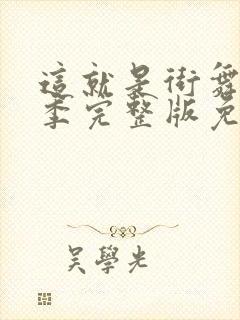 這就是街舞
季完整版免
吴學光